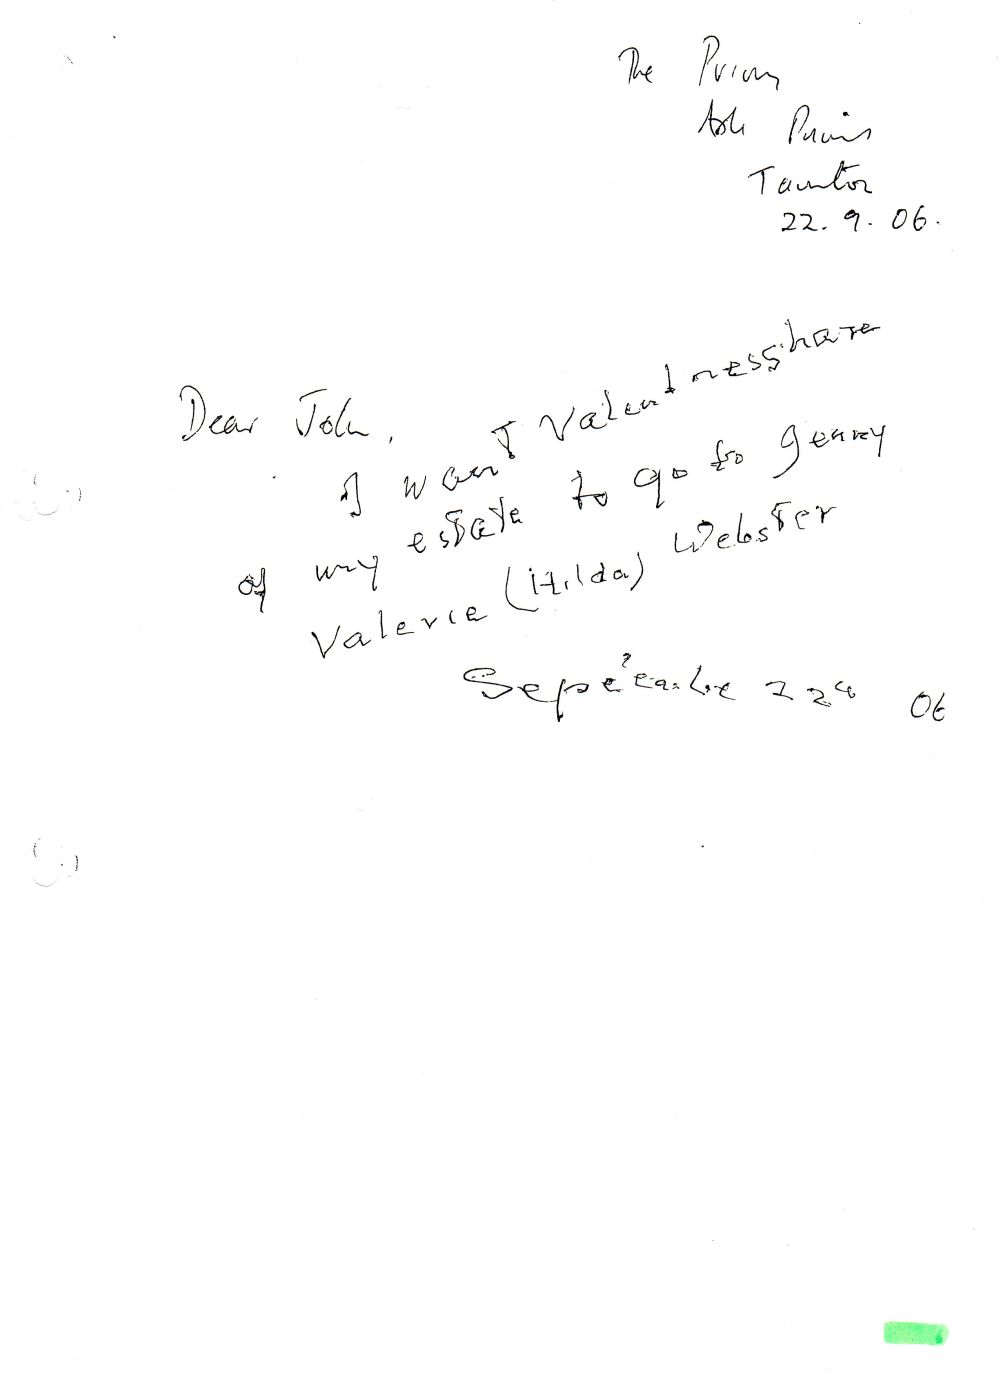 The Priory
Ash Priors
Taunton
22. 9. 06.
Dear John,
I want Valentnesshare
of my estate to go to genny
Valerie (Hilda) Webster
06